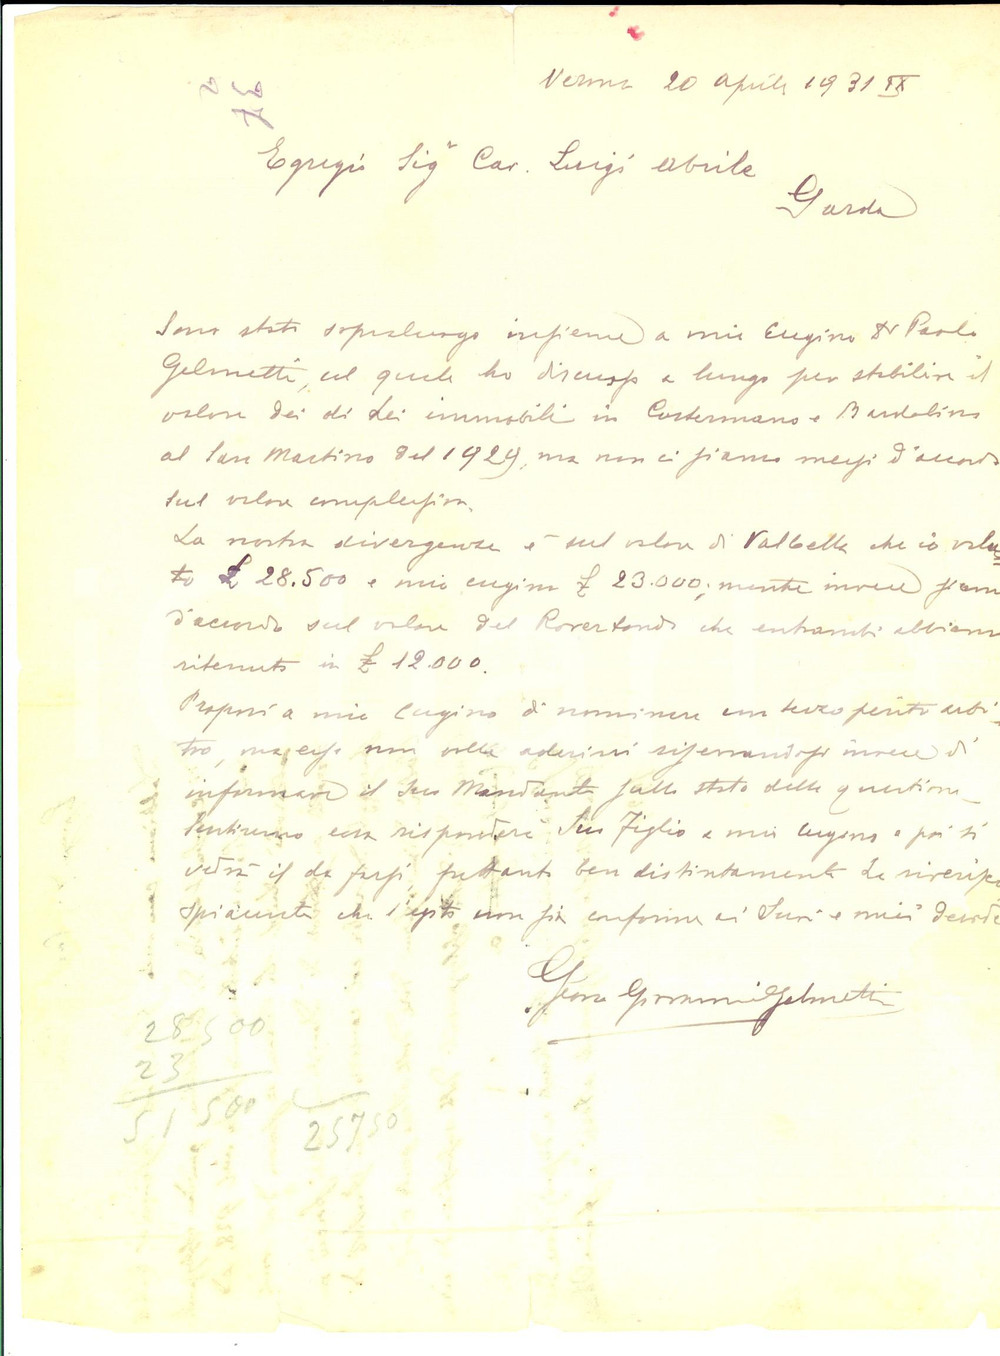 Verona 20 aprile 1931 IX
Egregio Sigr Cav. Luigi Abrile
Garda
Sono stato sopraluogo insieme a mio cugino Dr Paolo
Gelmetti, col quale ho discusso a lungo per stabilire il
valore dei di Lei immobili in Costermano e Bardolino
al San Martino del 1929, ma non ci siamo messi d'accordo
sul valore complessivo.
La nostra divergenza è sul valore di Valbella che io valu
to £ 28.500 e mio cugino £ 23.000; mentre invece siam
d'accordo sul valore del Rovertondo che entrambi abbiam
ritenuto in £ 12.000.
Proposi a mio cugino di nominare un terzo perito arbi-
tro, ma esso non volle aderirvi riservandosi invece di
informare il suo Mandante sullo stato della questione
Sentiremo cosa risponderà Suo Figlio a mio cugino e poi si
vedrà il da farsi, frattanto ben distintamente La riverisco
spiacente che l'esito non sia conforme ai Suoi e miei desideri
Geom Giovanni Gelmetti
28500
23
51 500
25750